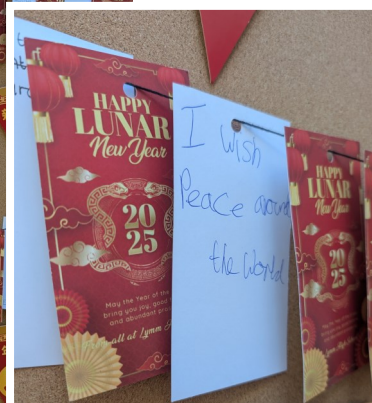 HAPPY
LUNAR
New Year
20
25
May the Year of the
bring you joy, good
and abundant
all at Lymm
I wish
Peace around
the World
HAPPY
LUNAR
New Year
20
25